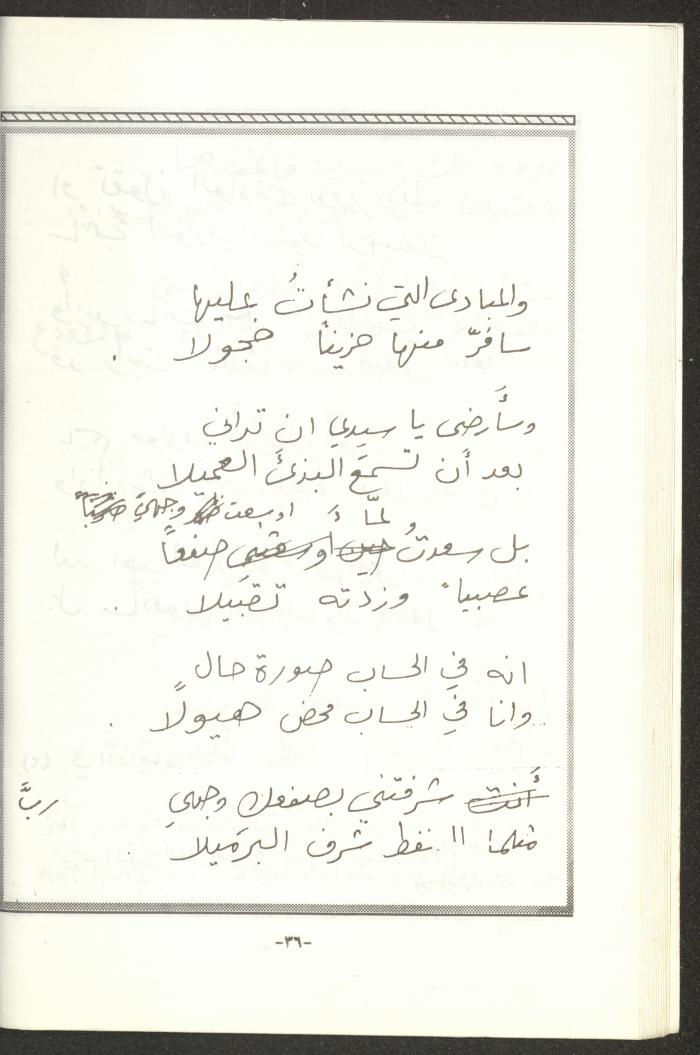 والمبادئ التي نشأتُ عليها
سافرّ منها حزيناً خجولا .
وسأَرضى يا سيدي ان تراني
بعد أن تسمعَ البذئَ العميلا
لمّا أوسعت وجهيَ
بل سعدتُ حين اوسعتني صفعاً
عصبياً وزدته تقبيلا ..
انه في الحساب صورة حالٍ
وانا في الحساب محض هيولاً .
أَنت شرفتني بصفعك وجهي
ربَّ
مثلما النفط شرف البرميلا .
-٣٦-